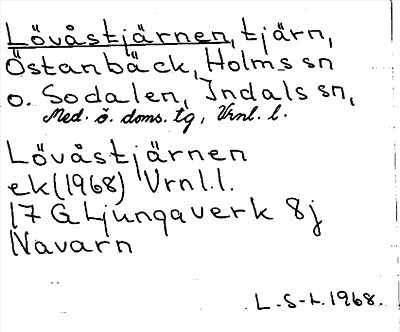 Lövåstjärnen, tjärn,
Östanbäck, Holms sn
o. Sodalen, Indals sn,
Med. ö. doms. tg, Vrnl. l.
Lövåstjärnen
ek(1968) Vrnl.l.
17 G Ljungaverk 8j
Navarn
L.S-t.1968.